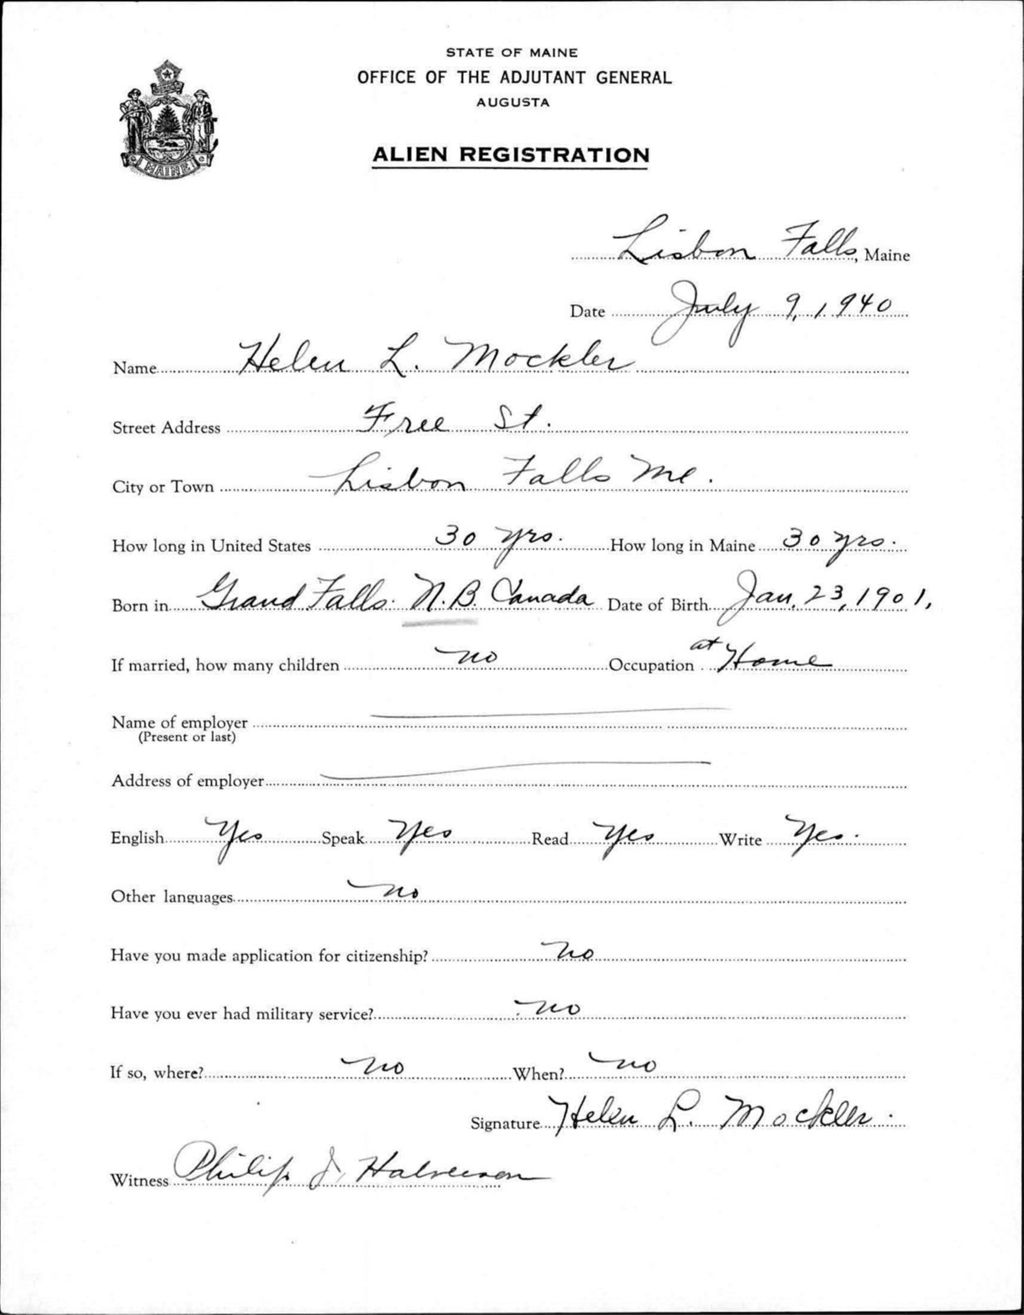 STATE OF MAINE
OFFICE OF THE ADJUTANT GENERAL
AUGUSTA
ALIEN REGISTRATION
MAINE
Lisbon Falls, Maine
Date July 9, 1940
Name Helen L. Mockler
Street Address Free St.
City or Town Lisbon Falls Me.
How long in United States 30 yrs. How long in Maine 30 yrs.
Born in Grand Falls. N.B. Canada Date of Birth Jan. 23, 1901,
If married, how many children no Occupation at Home
Name of employer
(Present or last)
Address of employer
English Yes Speak Yes Read Yes Write Yes.
Other languages no
Have you made application for citizenship? no
Have you ever had military service? no
If so, where? no When? no
Signature Helen L. Mockler.
Witness Philip J. Halverson